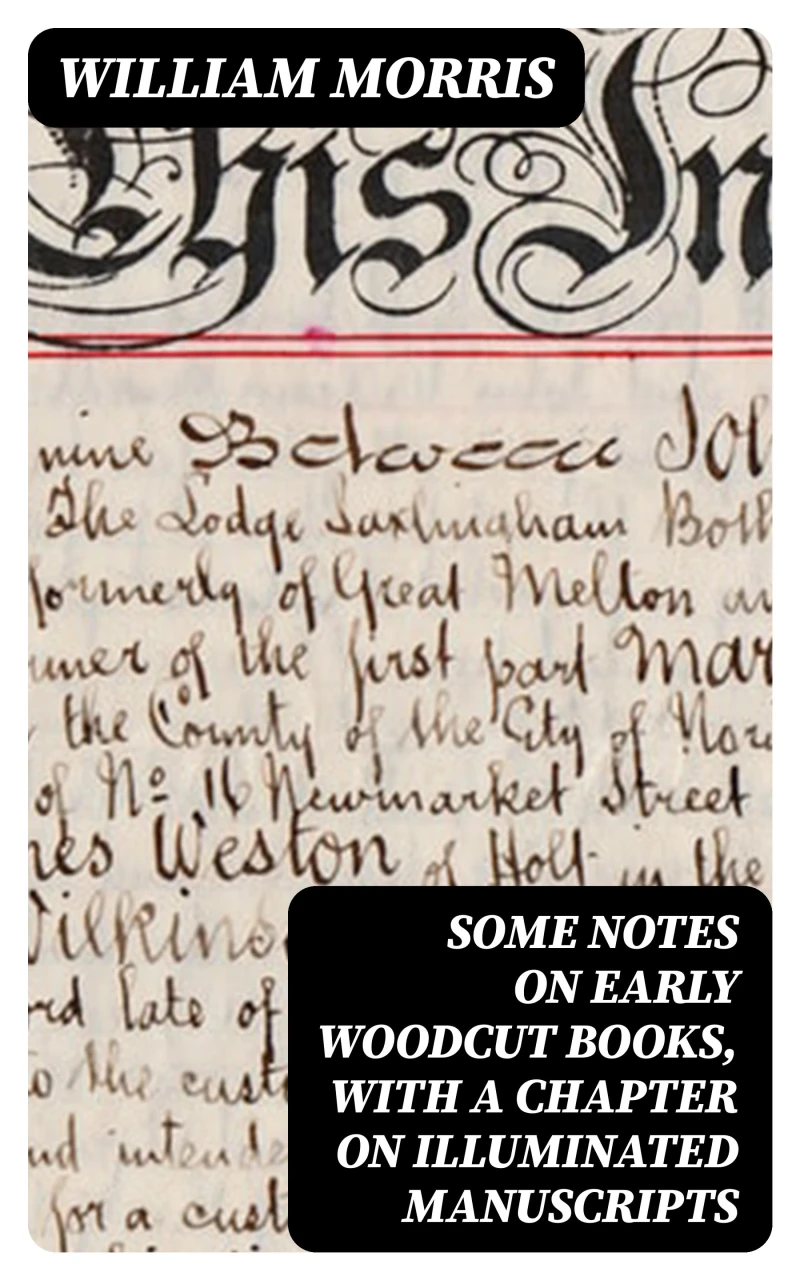 WILLIAM MORRIS
This In
nine Between Joh
The Lodge Saxlingham Both
formerly of Great Melton an
of the first part Mar
the County of the City of Nor
of No 16 Newmarket Street
nes Weston of Holt in the
Wilkins
rd late of
to the cust
nd intende
for a cust
SOME NOTES
ON EARLY
WOODCUT BOOKS,
WITH A CHAPTER
ON ILLUMINATED
MANUSCRIPTS